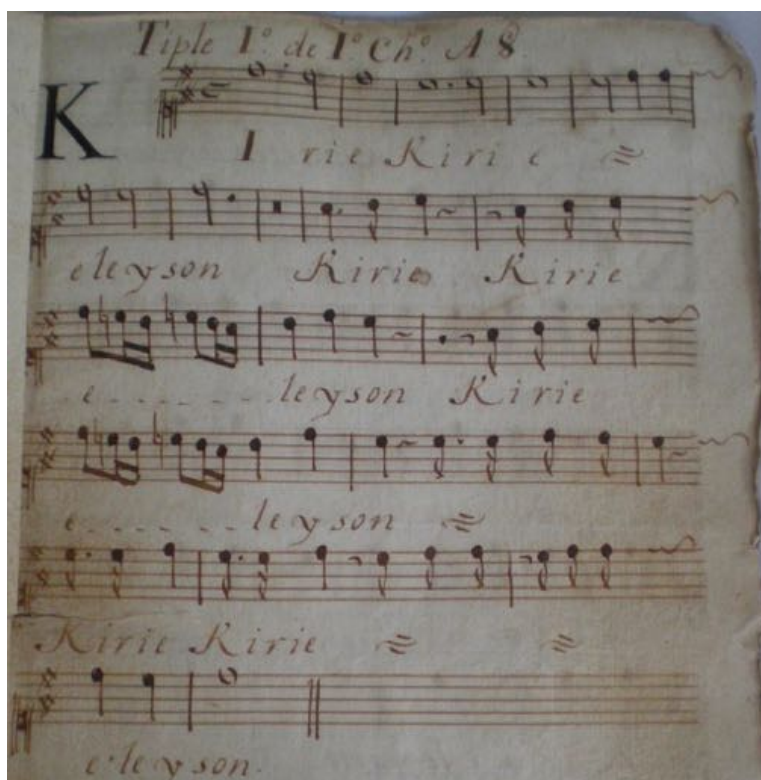 Tiple 1º. de 1º. Chº. A 8.
K I rie Kiri e =
eleyson Kirie Kirie
e - - - - - leyson Kirie
e - - - - - leyson =
Kirie Kirie = =
eleyson.